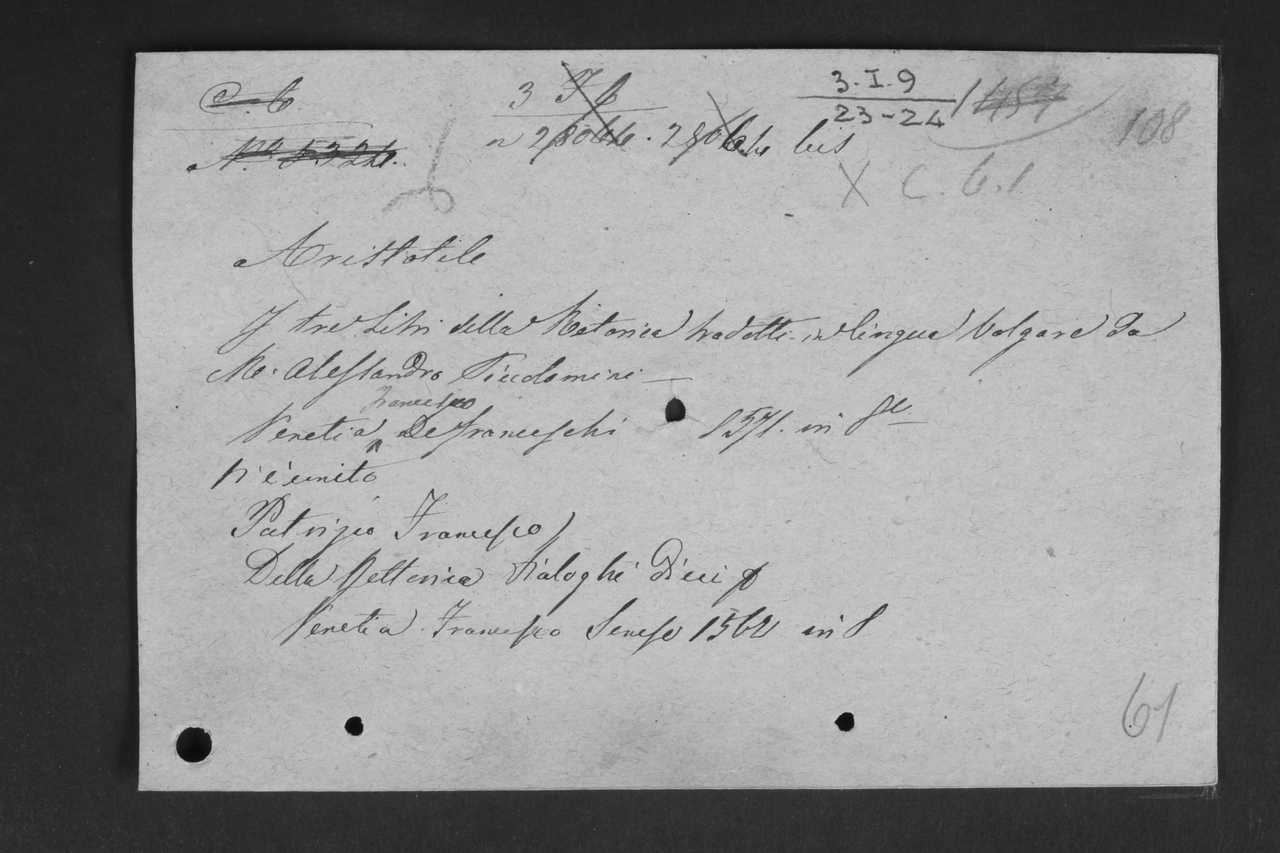 C. 6
3 I 6
3.I.9
23-24
108
No. 5324.
bis
X C. 6.1
Aristotile
I tre Libri della Retorica tradotti in lingua Volgare da
M. Alessandro Piccolomini
Francesco
Venetia De Franceschi 1571. in 8º
Vi è unito
Patrizio Francesco
Della Rettorica Dialoghi dieci
Venetia Francesco Senese 1562 in 8
61